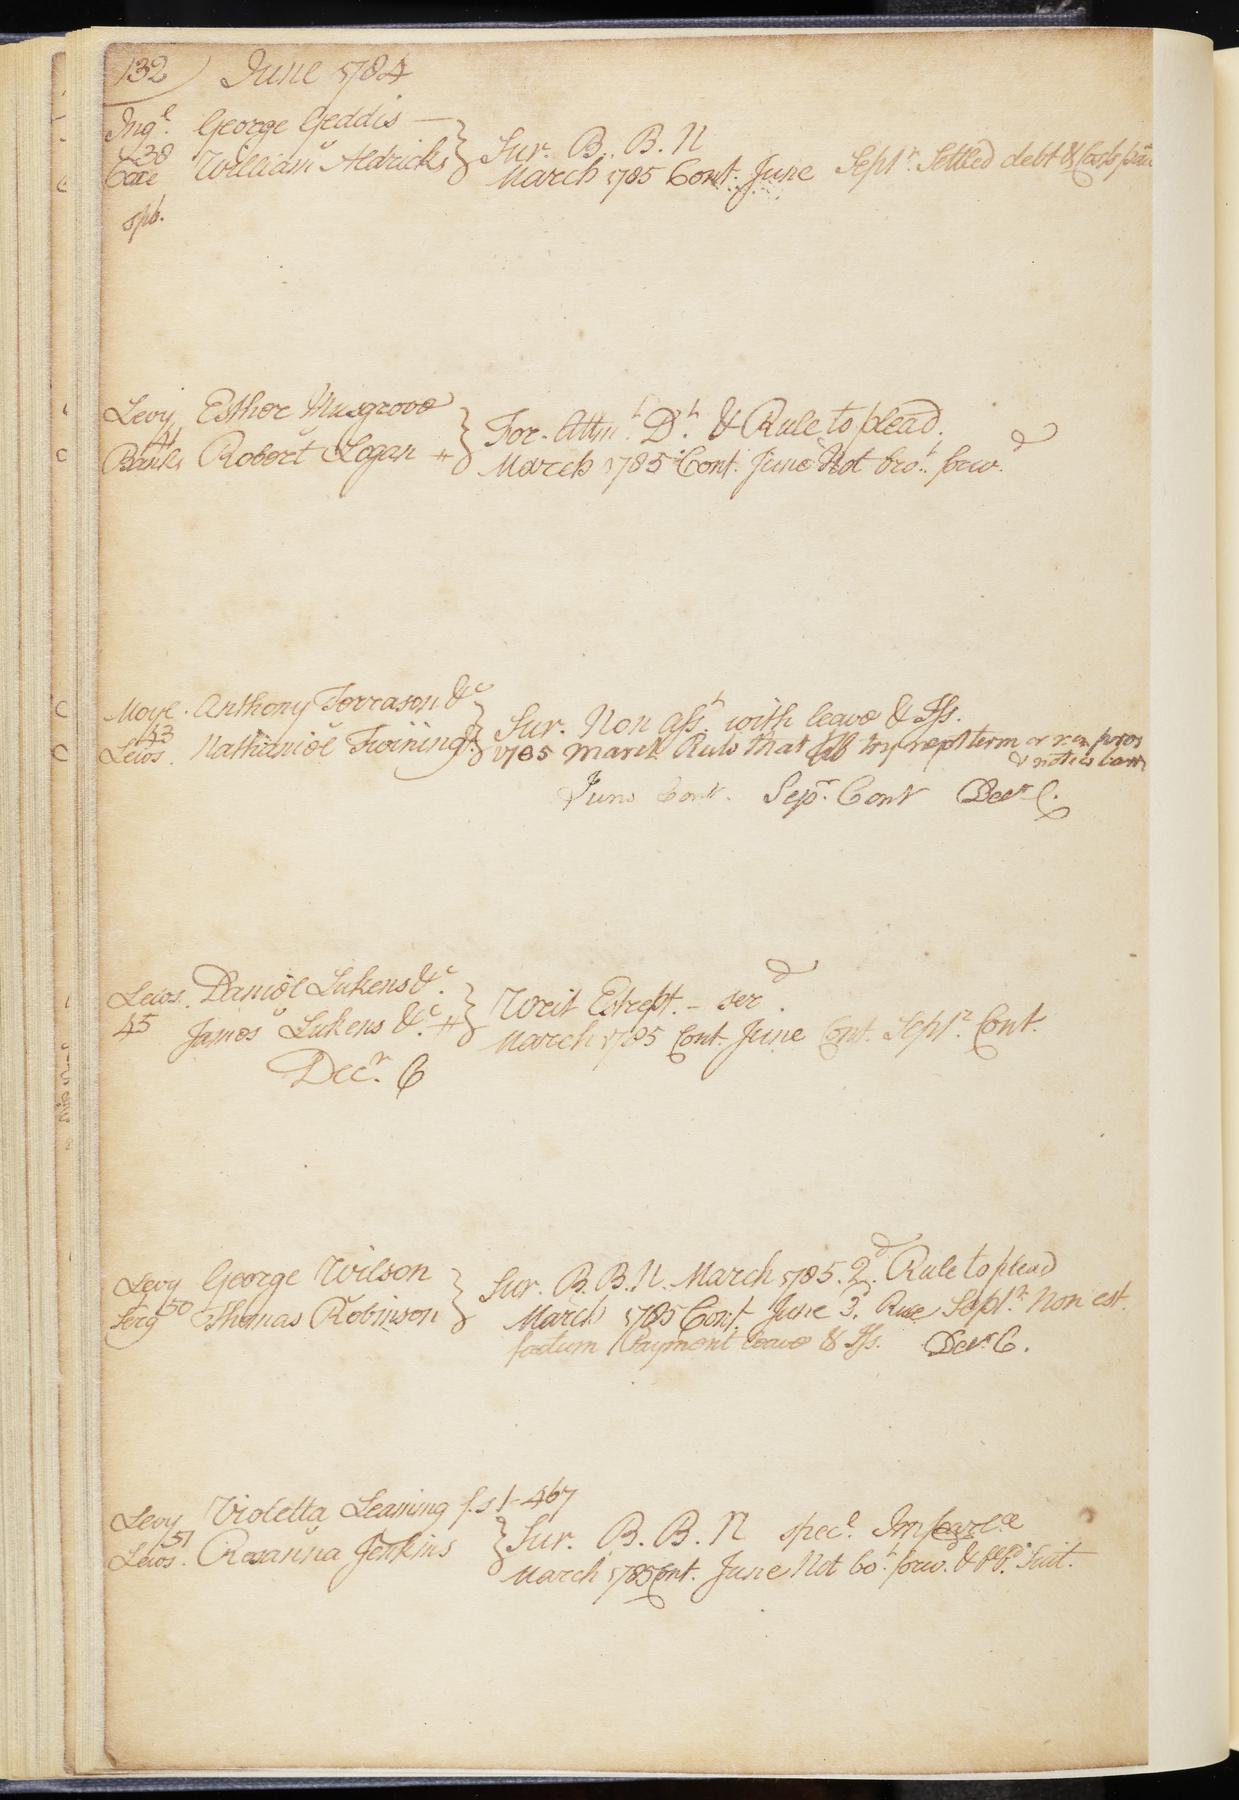 132) June 1784
Ingl. George Geddis —
38
Coxe William Aldricks } Sur. B. B. N
March 1785 Cont. June Septr. Settled debt & Costs
spb.
Levy Esther Musgrove
41
Banks Robert Logan # } For. Attmt. Dt. & Rule to plead.
March 1785 Cont. June Not brot. forwd.
Moyl. Anthony Terrason &c
43
Lewis. Nathaniel Twining } Sur. Non Asst. with leave & Iss.
1785 March Rule that try next term or non pros
& notice
June Cont. Sepr. Cont Decr C.
Lewis. Daniel Lukens &c.
45 James Lukens &c. # } Writ Estrept. – serd.
March 1785 Cont. June Cont. Septr. Cont.
Decr. C
Levy George Wilson
50
Serg Thomas Robinson } Sur. B. B. N. March 1785. 2d. Rule to plead
March 1785 Cont. June 3d. Rule Septr. Non est.
factum Payment leave & Iss. Decr. C.
Levy Violetta Leaming f.s 1-467
51
Lewis. Roxanna Jenkins } Sur. B. B. N specl. Imparlce
March 1785 Cont. June Not bot. forwd. & Suit.